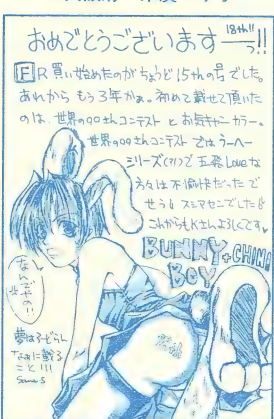 おめでとうございますーっ!!
18th!!
FR買い始めたのがちょうど15thの号でした。
あれからもう3年かぁ。初めて載せて頂いた
のは、世界の○○さんコンテストとお気チャーカラー。
世界の○○さんコンテストでは
シリーズ(?!)で Loveな
方々は不愉快だったで
せう スミマセンでした
これからもよろしくです
BUNNY+CHINA
BOY
なんでやの!!
夢は
に載る
こと!!!